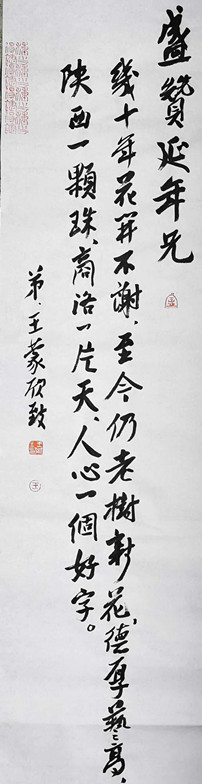 盛贊延年兄
幾十年花開不謝，至今仍老樹新花，德厚藝高，
陝西一顆珠，商洛一片天，人心一個好字。
弟·王蒙欣致